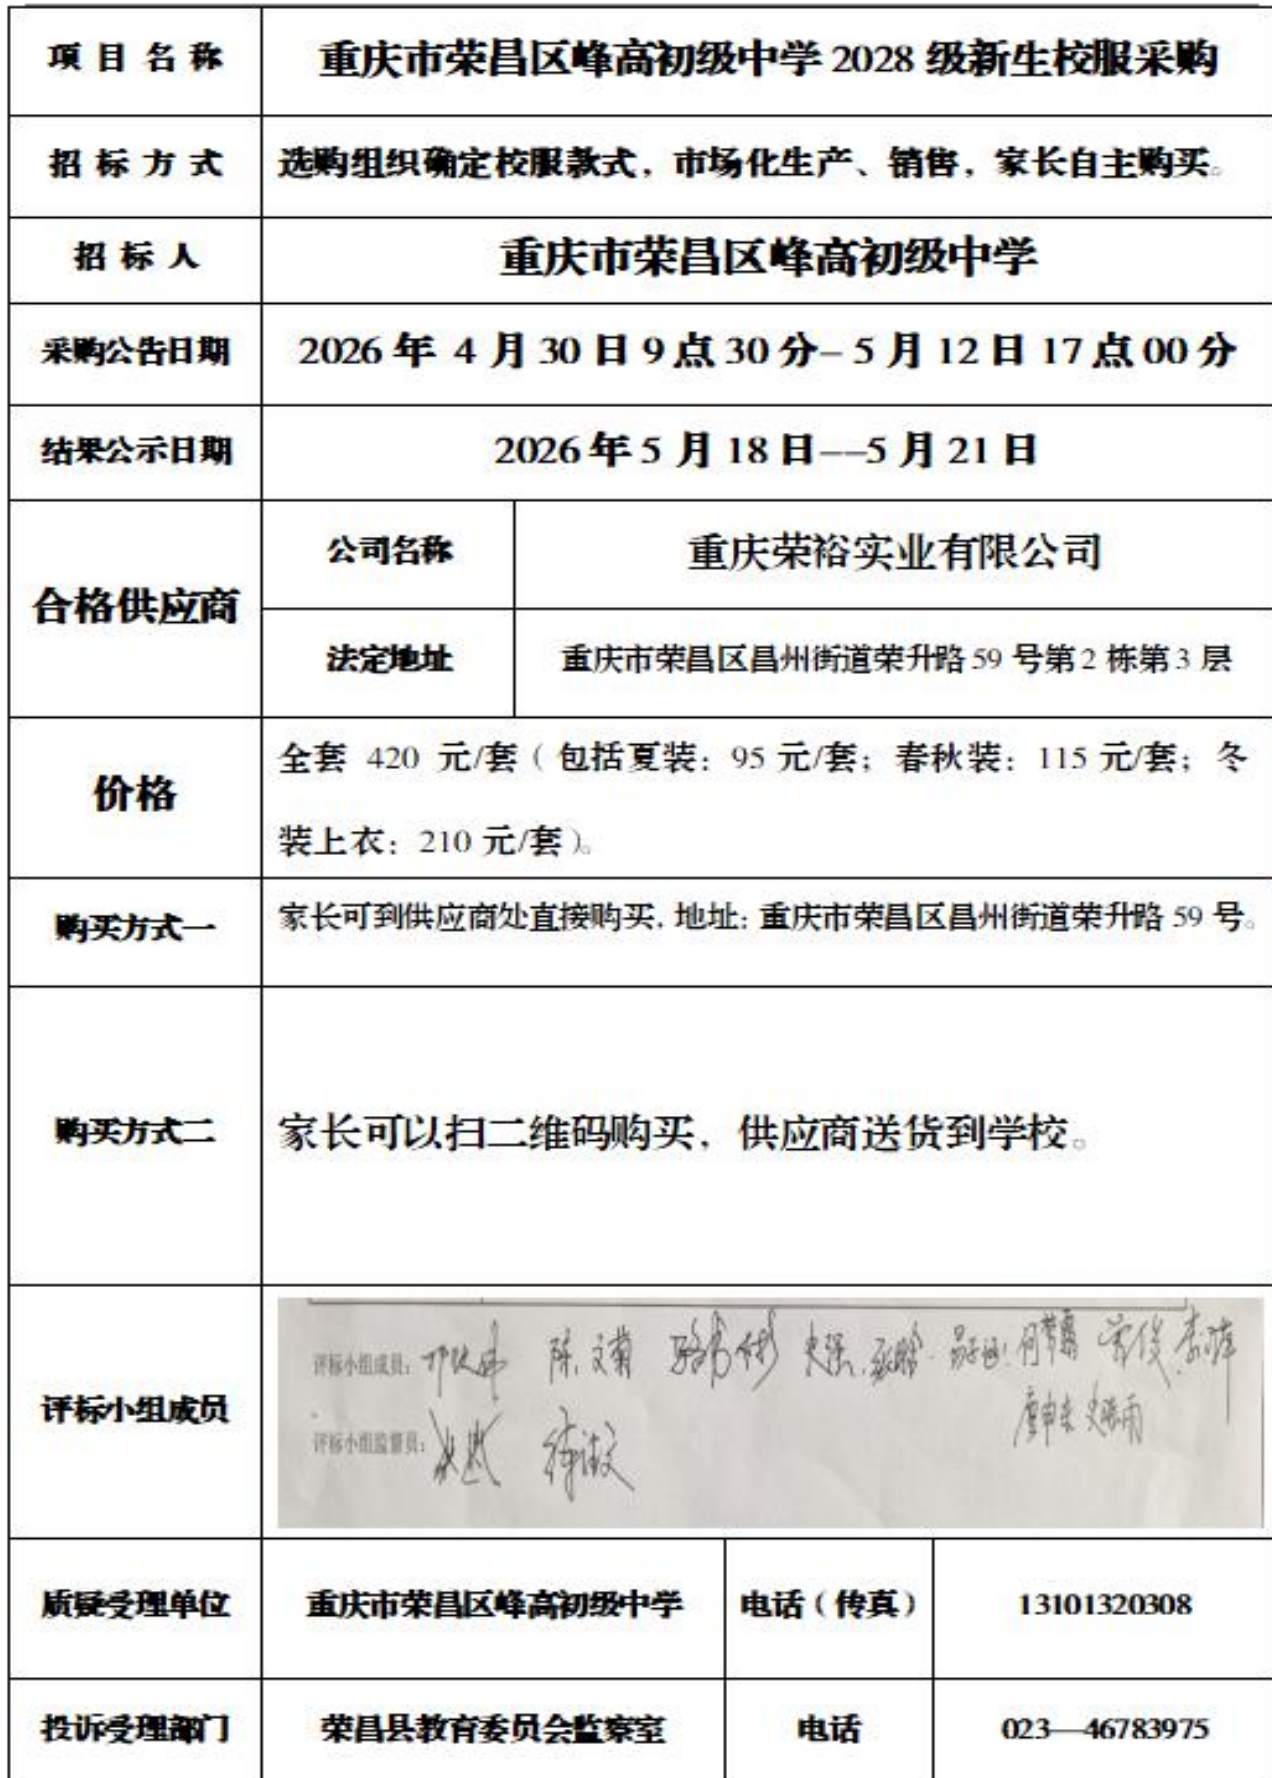 项目名称 重庆市荣昌区峰高初级中学 2028 级新生校服采购
招标方式 选购组织确定校服款式，市场化生产、销售，家长自主购买。
招标人 重庆市荣昌区峰高初级中学
采购公告日期 2026 年 4 月 30 日 9 点 30 分– 5 月 12 日 17 点 00 分
结果公示日期 2026 年 5 月 18 日––5 月 21 日
合格供应商
公司名称 重庆荣裕实业有限公司
法定地址 重庆市荣昌区昌州街道荣升路 59 号第 2 栋第 3 层
价格
全套 420 元/套（包括夏装：95 元/套；春秋装：115 元/套；冬
装上衣：210 元/套）。
购买方式一 家长可到供应商处直接购买，地址：重庆市荣昌区昌州街道荣升路 59 号。
购买方式二 家长可以扫二维码购买，供应商送货到学校。
评标小组成员
评标小组成员： 陈文菊 史强
评标小组监督员：
质疑受理单位 重庆市荣昌区峰高初级中学 电话（传真） 13101320308
投诉受理部门 荣昌县教育委员会监察室 电话 023—46783975